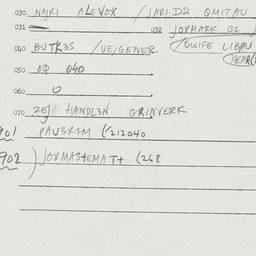 030 NAJRI ALEVOX / JARLD2 QMITAU
031 032 JORMARK GZ J
040 BUTK35 /VE/GENER /QUIFE LIBPU
(YEAR(
050 EQ 040
060 O
070 2EJ HANDL3N GRINVERK
901 PAU3RIM (/212040
902 ) JORMASTEMATT (268